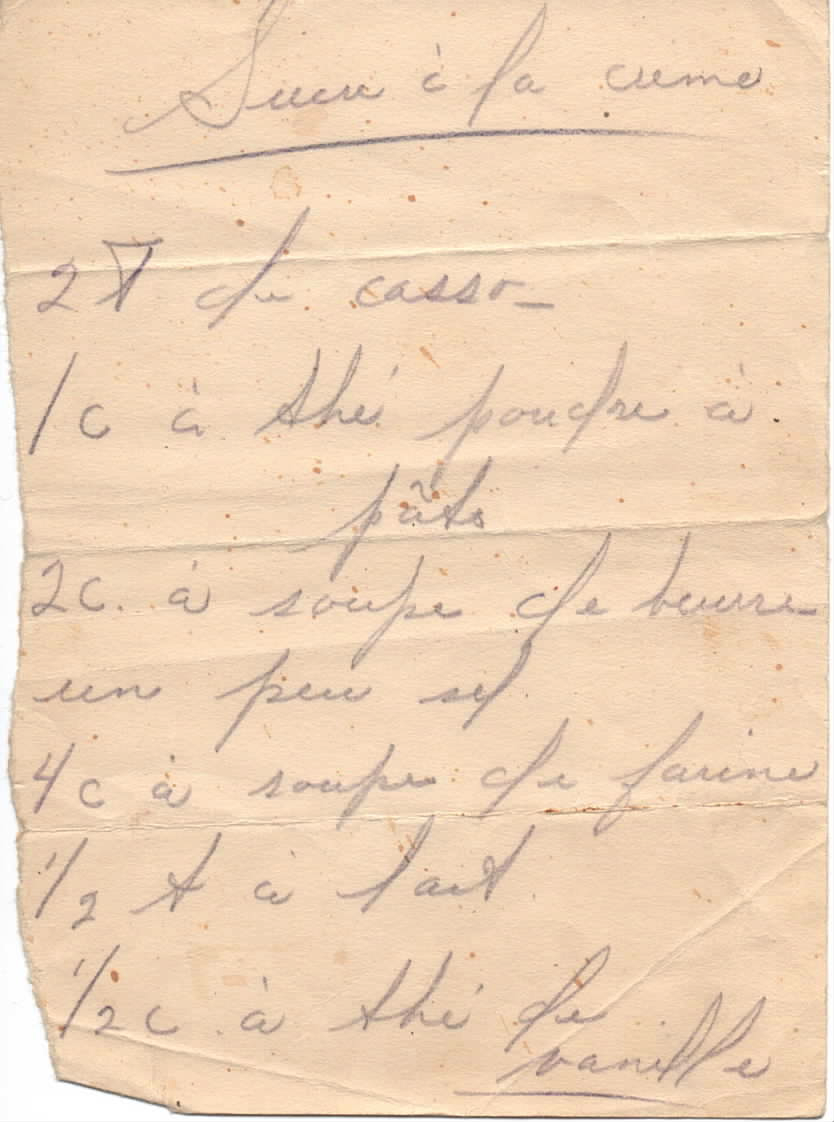 Sucre à la creme
2 T de casso
1 c à thé poudre à
pâte
2 c. à soupe de beurre
un peu sel
4 c à soupe de farine
1/2 t à lait
1/2 c à thé de
vanille